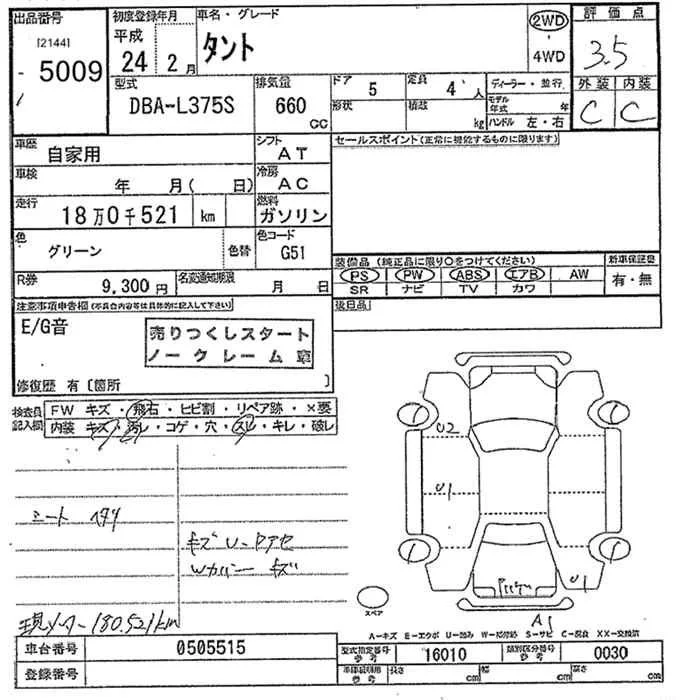 出品番号
[2144]
5009
初度登録年月
平成
24 2月
車名・グレード
タント
2WD
4WD
評価点
3.5
外装 内装
C C
型式
DBA-L375S
排気量
660
CC
ドア 5
形状
定員 4 人
積載 kg
ディーラー・並行
モデル年式 年
ハンドル 左・右
車歴
自家用
シフト
AT
車検
年 月( 日)
冷房
AC
走行
18万0千521 km
燃料
ガソリン
色
グリーン
色替
色コード
G51
R券
9,300円
名変通知期限
月 日
セールスポイント(正常に機能するものに限ります)
装備品 (純正品に限り○をつけてください)
PS PW ABS エアB AW
SR ナビ TV カワ
新車保証書
有・無
後日品
注意事項申告欄(不具合内容等は具体的に記入して下さい)
E/G音
売りつくしスタート
ノークレーム車
修復歴 有〔箇所 〕
検査員記入欄
FW キズ・飛石・ヒビ割・リペア跡・×要
内装 キズ・汚レ・コゲ・穴・スレ・キレ・破レ
シート
キズ
キズ
現メーター 180,521km
U2
U1
U1
スペア
A1
A-キズ E-エクボ U-凹み W-補修跡 S-サビ C-腐食 XX-交換済
車台番号 0505515
登録番号
型式指定番号
参考
16010
類別区分番号
参考
0030
車庫証明用
参考
長さ cm 幅 cm 高さ cm